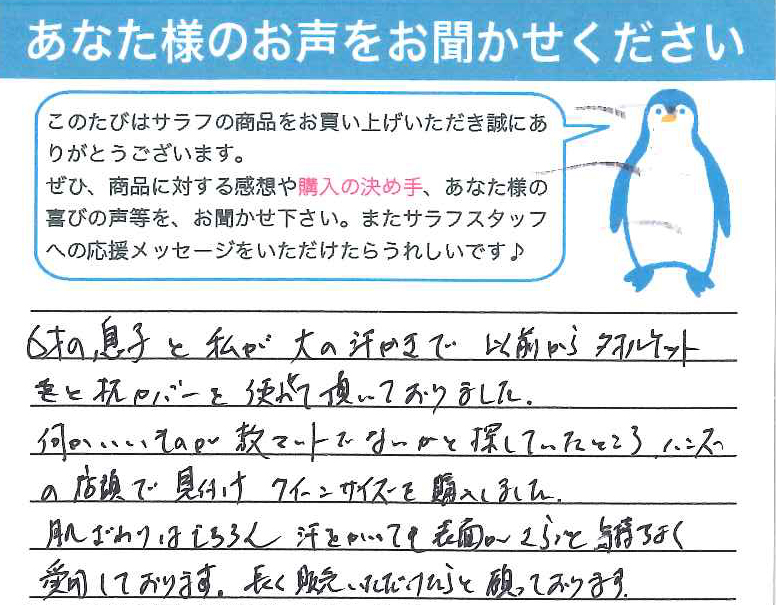 あなた様のお声をお聞かせください
このたびはサラフの商品をお買い上げいただき誠にあ
りがとうございます。
ぜひ、商品に対する感想や購入の決め手、あなた様の
喜びの声等を、お聞かせ下さい。またサラフスタッフ
への応援メッセージをいただけたらうれしいです♪
6才の息子と私が大の汗かきで以前からタオルケット
と枕カバーを使わせて頂いておりました。
何かいいものが敷マットでないかと探していたところ、ハンズ
の店頭で見付けクイーンサイズを購入しました。
肌ざわりはもちろん汗をかいても表面がさらっと気持ちよく
愛用しております。長く販売いただけたらと願っております。